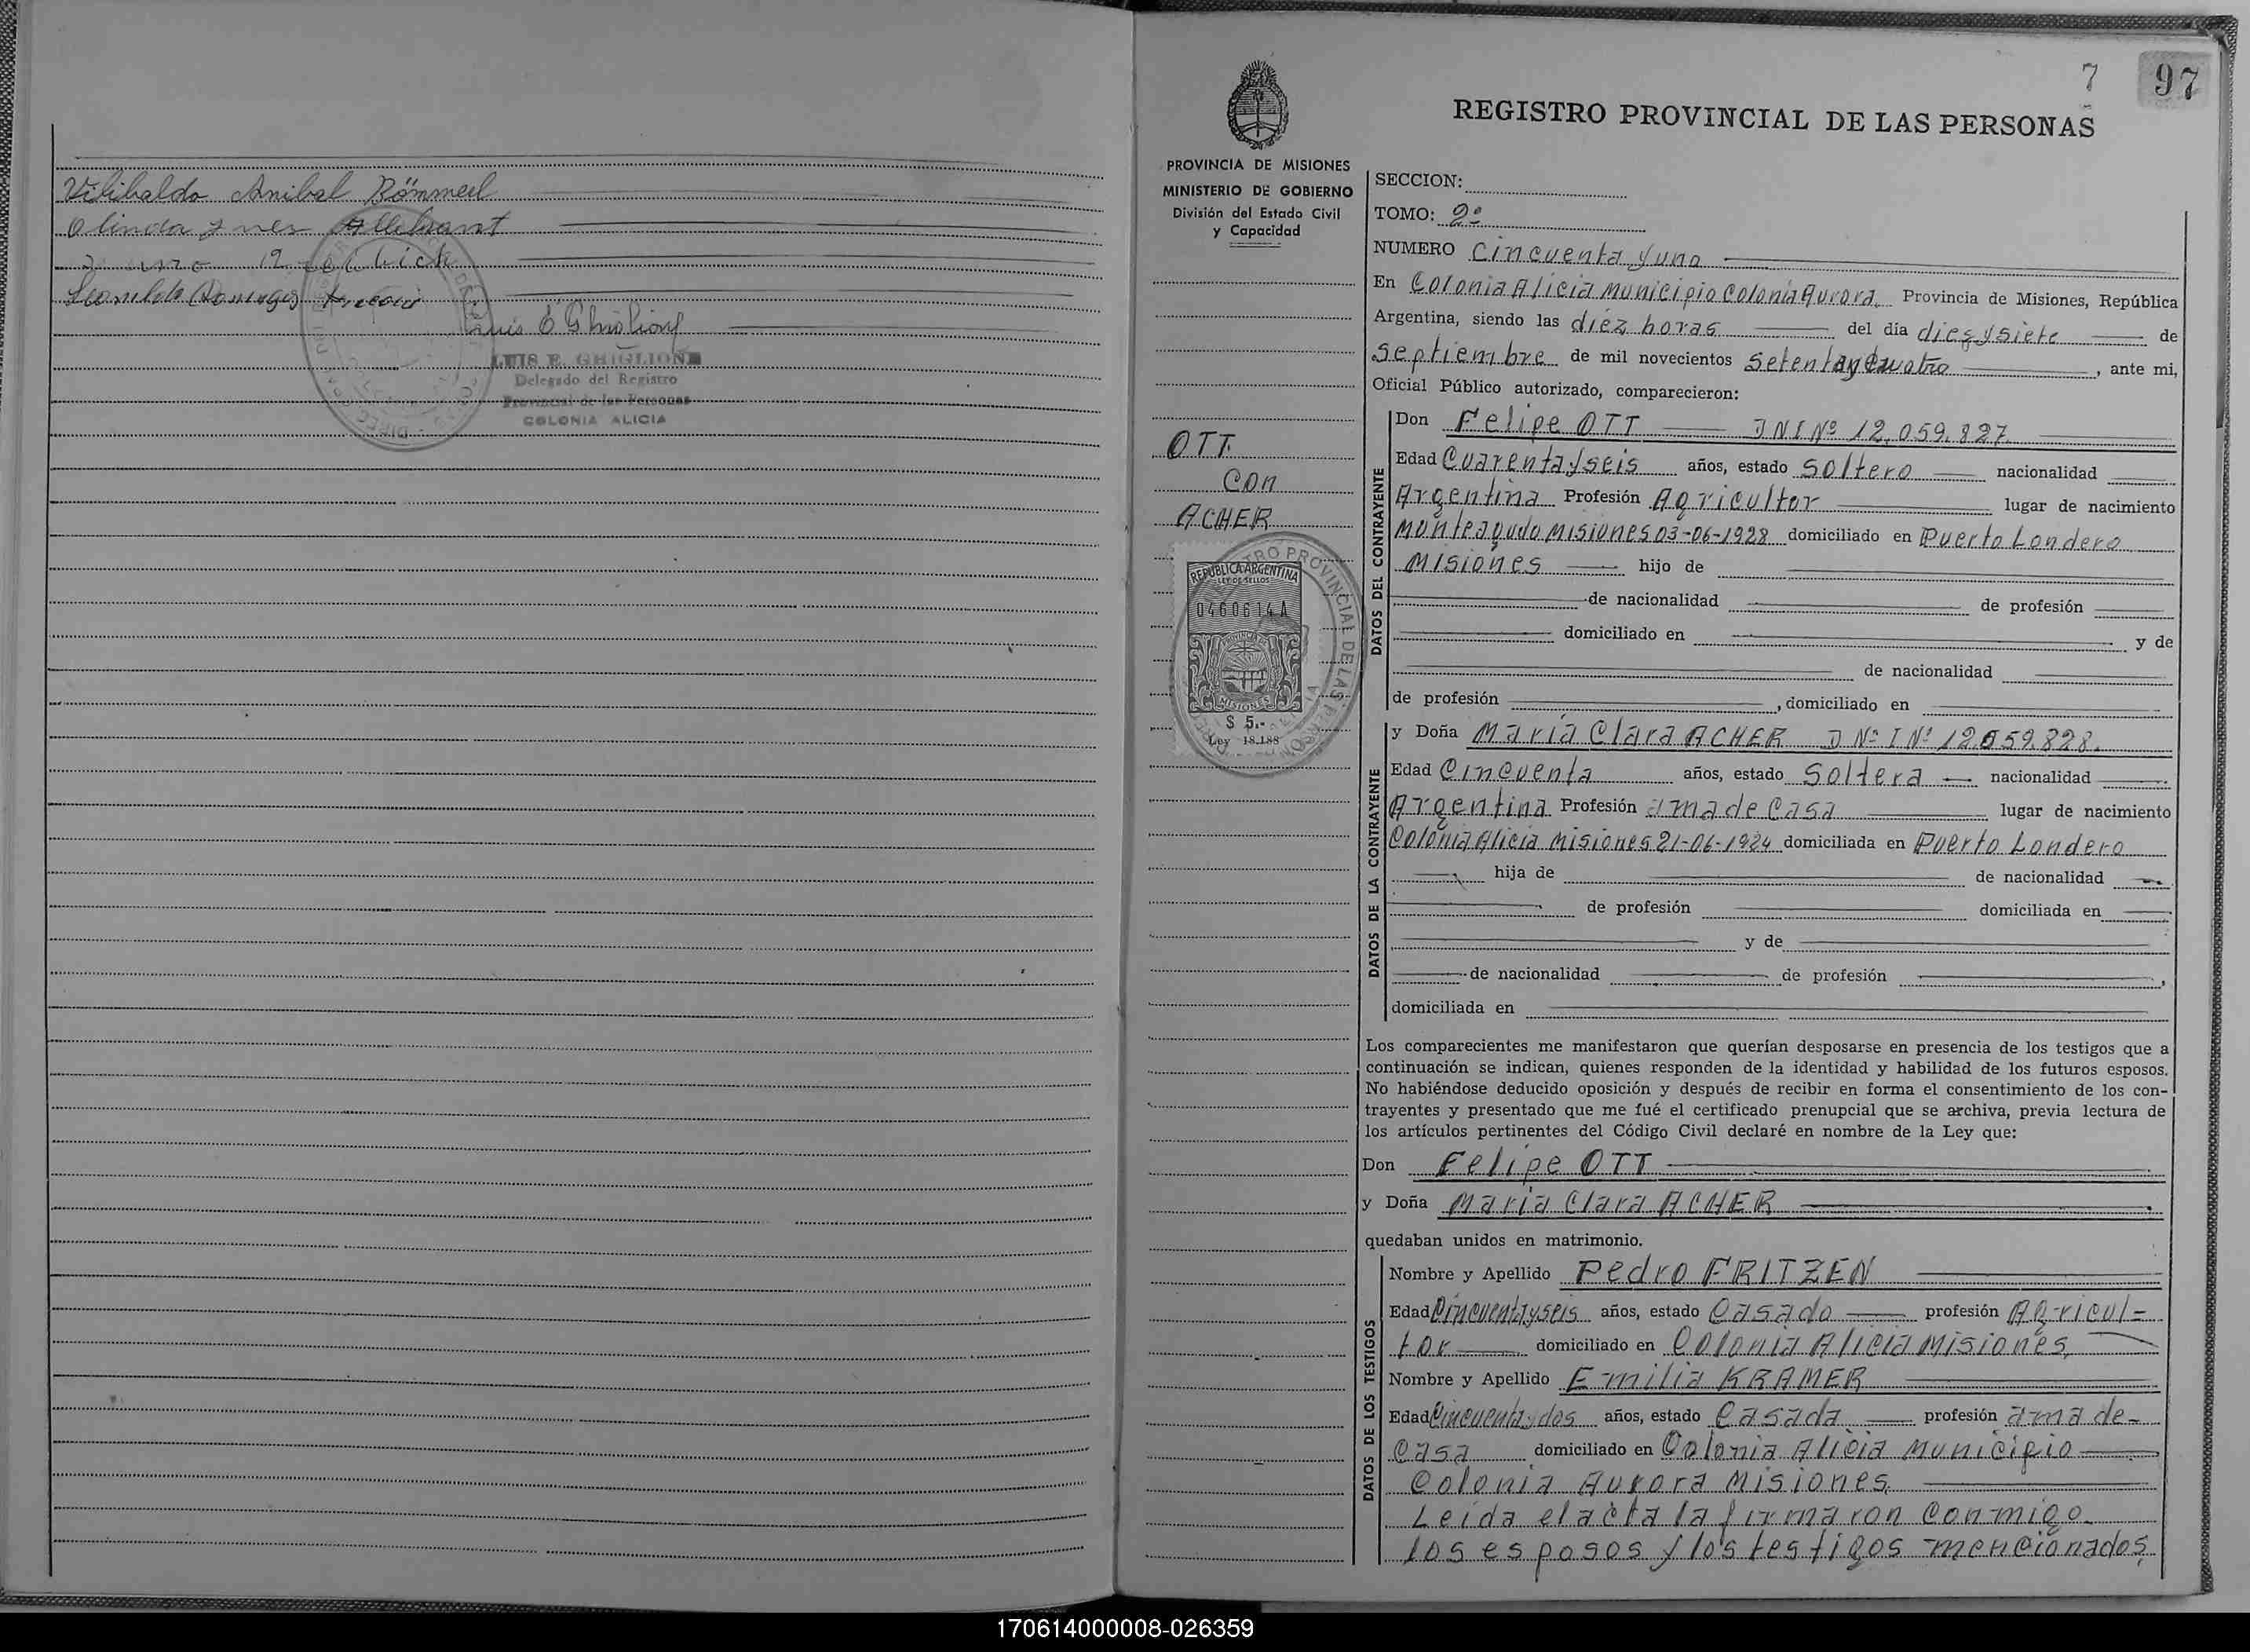 Vilibaldo Anibal Römmel
Olinda Ynes Allebrant
LUIS E. GHIGLIONE
Delegado del Registro
Provincial de las Personas
COLONIA ALICIA
7 97
REGISTRO PROVINCIAL DE LAS PERSONAS
PROVINCIA DE MISIONES
MINISTERIO DE GOBIERNO
División del Estado Civil
y Capacidad
OTT
con
ACHER
REPUBLICA ARGENTINA
LEY DE SELLOS
0460614 A
PROVINCIA DE
MISIONES
$ 5.-
Ley 18.188
SECCION:
TOMO: 2º
NUMERO Cincuenta y uno
En Colonia Alicia Municipio Colonia Aurora. Provincia de Misiones, República
Argentina, siendo las diéz horas del día diez y siete de
septiembre de mil novecientos setenta y cuatro, ante mi,
Oficial Público autorizado, comparecieron:
DATOS DEL CONTRAYENTE
Don Felipe OTT DNI Nº 12.059.827
Edad Cuarenta y seis años, estado soltero nacionalidad
Argentina Profesión Agricultor lugar de nacimiento
Monteagudo Misiones 03-06-1928 domiciliado en Puerto Londero
Misiones hijo de
de nacionalidad de profesión
domiciliado en y de
de nacionalidad
de profesión , domiciliado en
DATOS DE LA CONTRAYENTE
y Doña María Clara ACHER D Nº I Nº 12.059.828.
Edad Cincuenta años, estado Soltera nacionalidad
Argentina Profesión ama de Casa lugar de nacimiento
Colonia Alicia Misiones 21-06-1924 domiciliada en Puerto Londero
hija de de nacionalidad
de profesión domiciliada en
y de
de nacionalidad de profesión ,
domiciliada en
Los comparecientes me manifestaron que querían desposarse en presencia de los testigos que a
continuación se indican, quienes responden de la identidad y habilidad de los futuros esposos.
No habiéndose deducido oposición y después de recibir en forma el consentimiento de los con-
trayentes y presentado que me fué el certificado prenupcial que se archiva, previa lectura de
los artículos pertinentes del Código Civil declaré en nombre de la Ley que:
Don Felipe OTT
y Doña María Clara ACHER
quedaban unidos en matrimonio.
DATOS DE LOS TESTIGOS
Nombre y Apellido Pedro FRITZEN
Edad Cincuenta y seis años, estado Casado profesión Agricul-
tor domiciliado en Colonia Alicia Misiones
Nombre y Apellido Emilia KRAMER
Edad Cincuenta y dos años, estado Casada profesión ama de
Casa domiciliado en Colonia Alicia Municipio
Colonia Aurora Misiones.
Leída el acta la firmaron conmigo
los esposos y los testigos mencionados
170614000008-026359